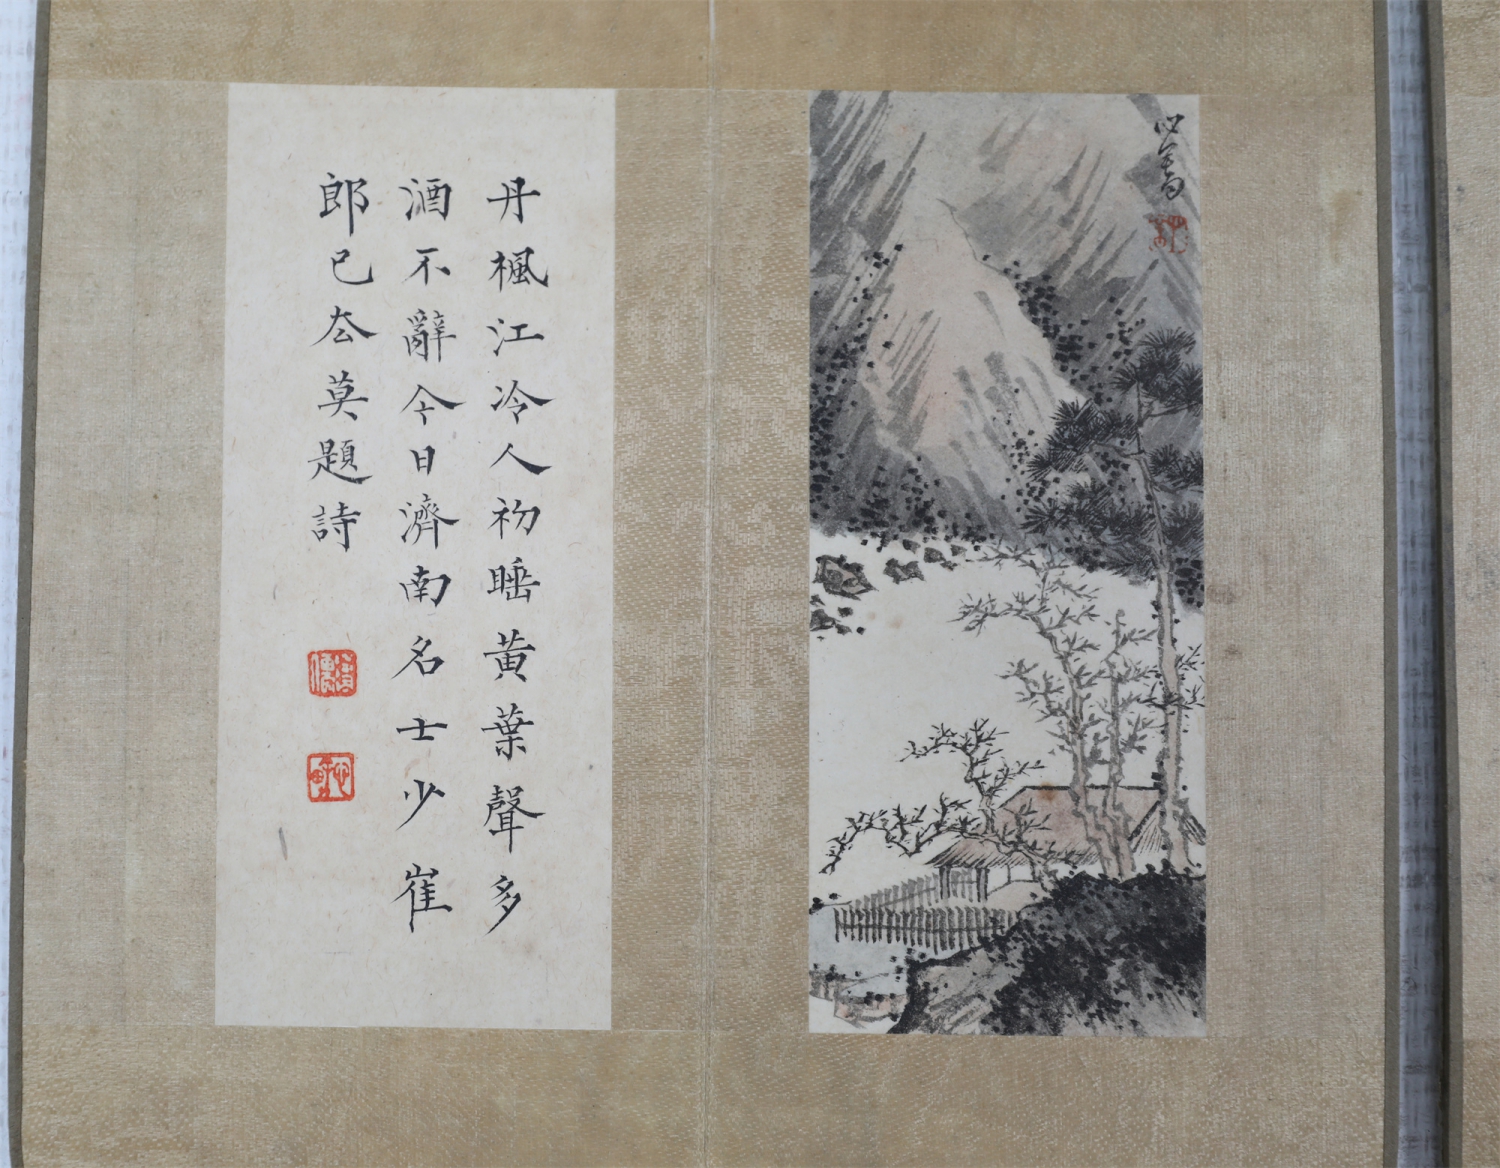 心畬
丹楓江冷人初睡黄葉聲多
酒不辭今日濟南名士少崔
郎已厺莫題詩